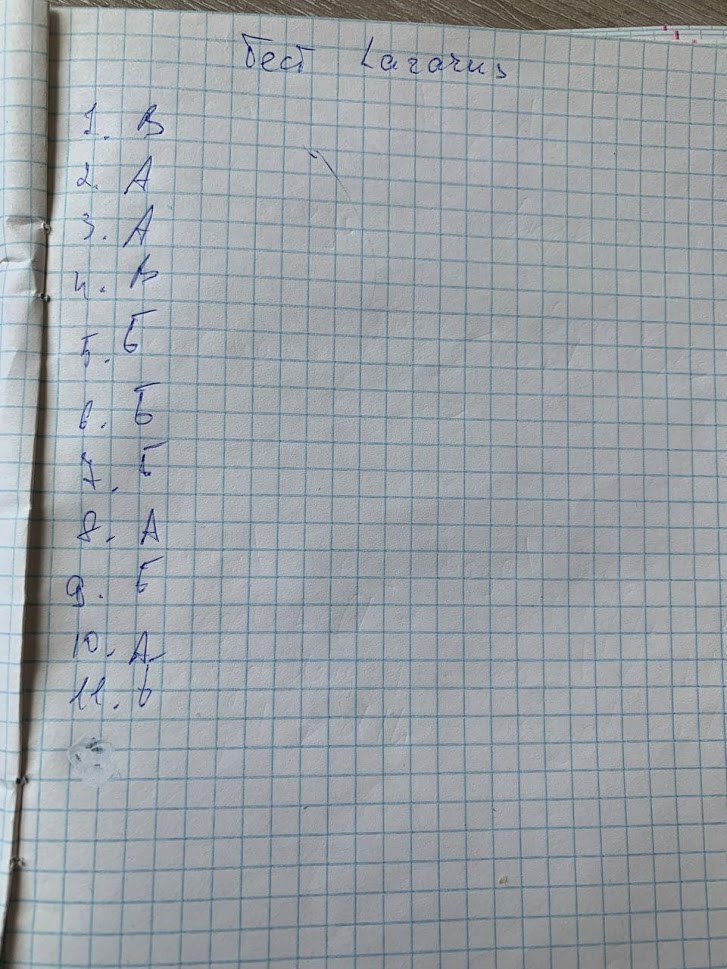 Тест Lazarus
1. В
2. А
3. А
4. В
5. Б
6. Б
7. Б
8. А
9. Б
10. А
11. Б